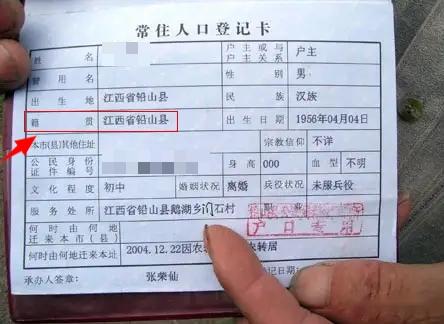 常住人口登记卡
姓名 户主或与户主关系 户主
曾用名 性别 男
出生地 江西省铅山县 民族 汉族
籍贯 江西省铅山县 出生日期 1956年04月04日
本市(县)其他住址 宗教信仰 不详
公民身份证件编号 身高 000 血型 不明
文化程度 初中 婚姻状况 离婚 兵役状况 未服兵役
服务处所 江西省铅山县鹅湖乡门石村 职业
何时由何地迁来本市(县)
户口专用
何时由何地迁来本址 2004.12.22因农 农转居
承办人签章: 张荣仙 登记日期: